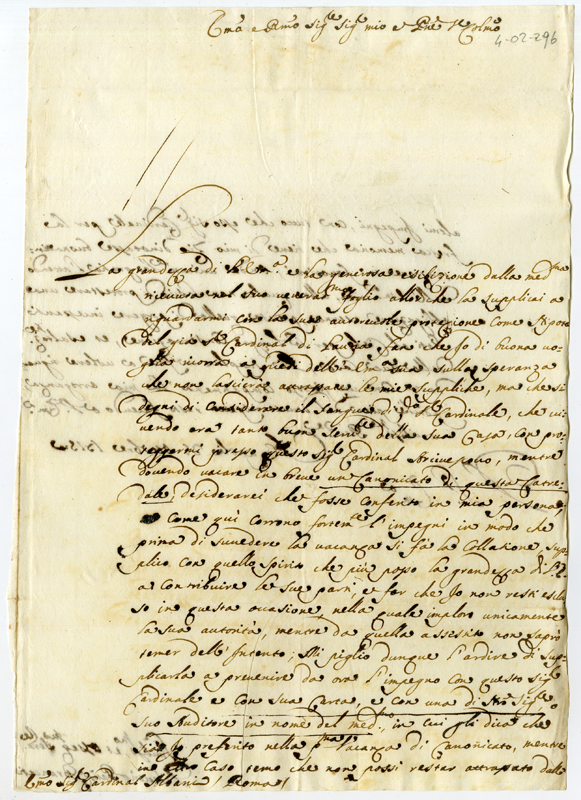 Emo e Rmo Sigr Sigr mio e Pne Colmo
4-02-296
La grandezza di V. Em. e la generosa esibizione dalla medma
ricevuta nel suo venerat foglio allorche la supplicai a
riguardarmi con la sua autorevole protezione come Nipote
del già Sr Cardinal di fa che Io di buona vo-
glia ricorra a piedi dell' sulla speranza
che non lascierà le mie suppliche, ma che si
degni di considerare il sangue di do Sr Cardinale, che vi-
vendo era tanto buon serve della sua Casa, con pro-
teggermi presso questo Sigr Cardinal Arcivescovo, mentre
dovendo vacare in breve un Canonicato di questa Catre-
dale, desiderarei che fosse conferito in mia persona;
Come quì corrono fortemte l'impegni in modo che
prima di succedere la vacanza si fà la Collazione, sup-
plico con quello spirito che più posso la grandezza di V. E.
a contribuire le sue parti, e far che Io non resti esclu-
so in questa occasione, nella quale imploro unicamente
la sua autorità, mentre da quella assistito non saprò
temer dell' Intento; Mi piglio dunque l'ardire di sup-
plicarla a prevenire da ora l'impegno con questo Sigr
Cardinale e con sua Carta, e con una di Sigr
suo Auditore in nome del medmo, in cui gli dica che
preferito nella pma vacanza di Canonicato, mentre
in altro caso temo che non possi restar attrassato dalle
Emo Sigr Cardinal Albani / Roma /